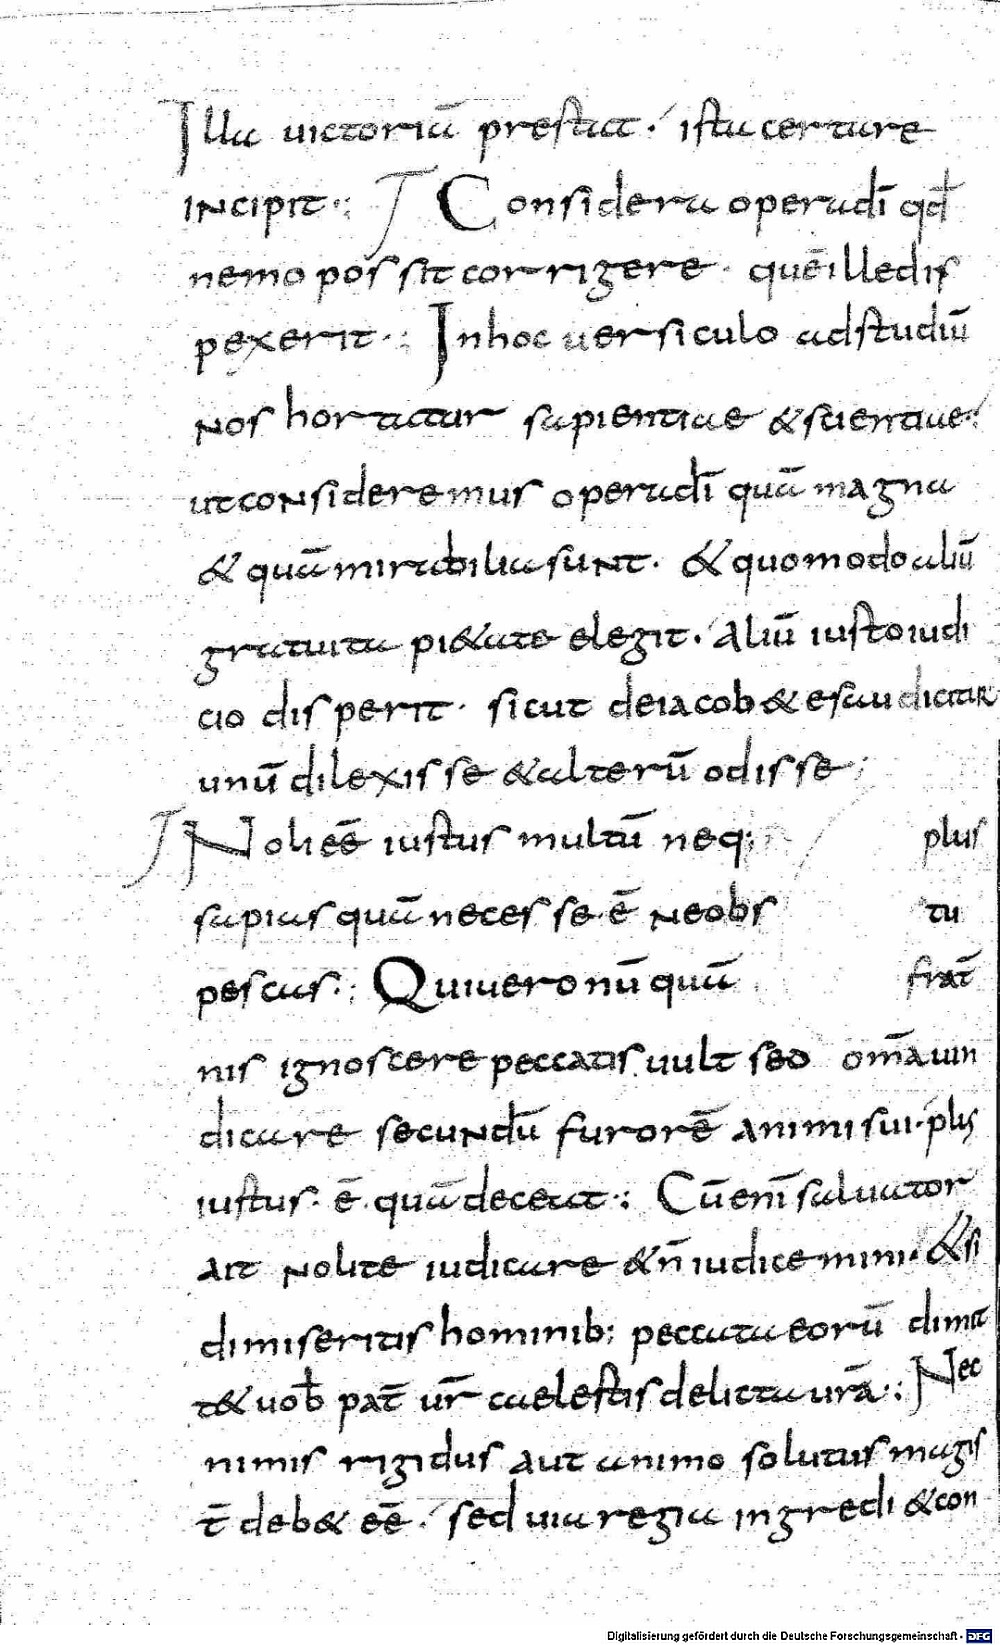 Illa uictoriā prestat· ista certare
incipit·: Considera opera dī qđ
nemo possit corrigere· quē ille dis
pexerit·: In hoc uersiculo ad studiū
nos hortatur sapientiae & scientiae·
ut consideremus opera dī quā magna
& quā mirabilia sunt· & quomodo aliū
gratuita pi&ate elegit· aliū iusto iudi
cio disperit· sicut de iacob & esau dicitur
unū dilexisse & alterū odisse;
Noli eē iustus multū neq; plus
sapias quā necesse ē ne obs tu
pescas·: Qui uero nūquā frat̄
nis ignoscere peccatis uult sed om̄a uin
dicare secundū furorē animi sui· plus
iustus· ē· quā deceat·: Cū enī saluator
ait nolite iudicare & n̄ iudicemini· & si
dimiseritis hominib; peccata eorū dimit
t&uob̄ pat̄ ur̄ caelestis delicta ur̄a·: Nec
nimis rigidus aut animo solutus magis
t̄ deb& eē· sed uia regia ingredi & con
Digitalisierung gefördert durch die Deutsche Forschungsgemeinschaft - DFG